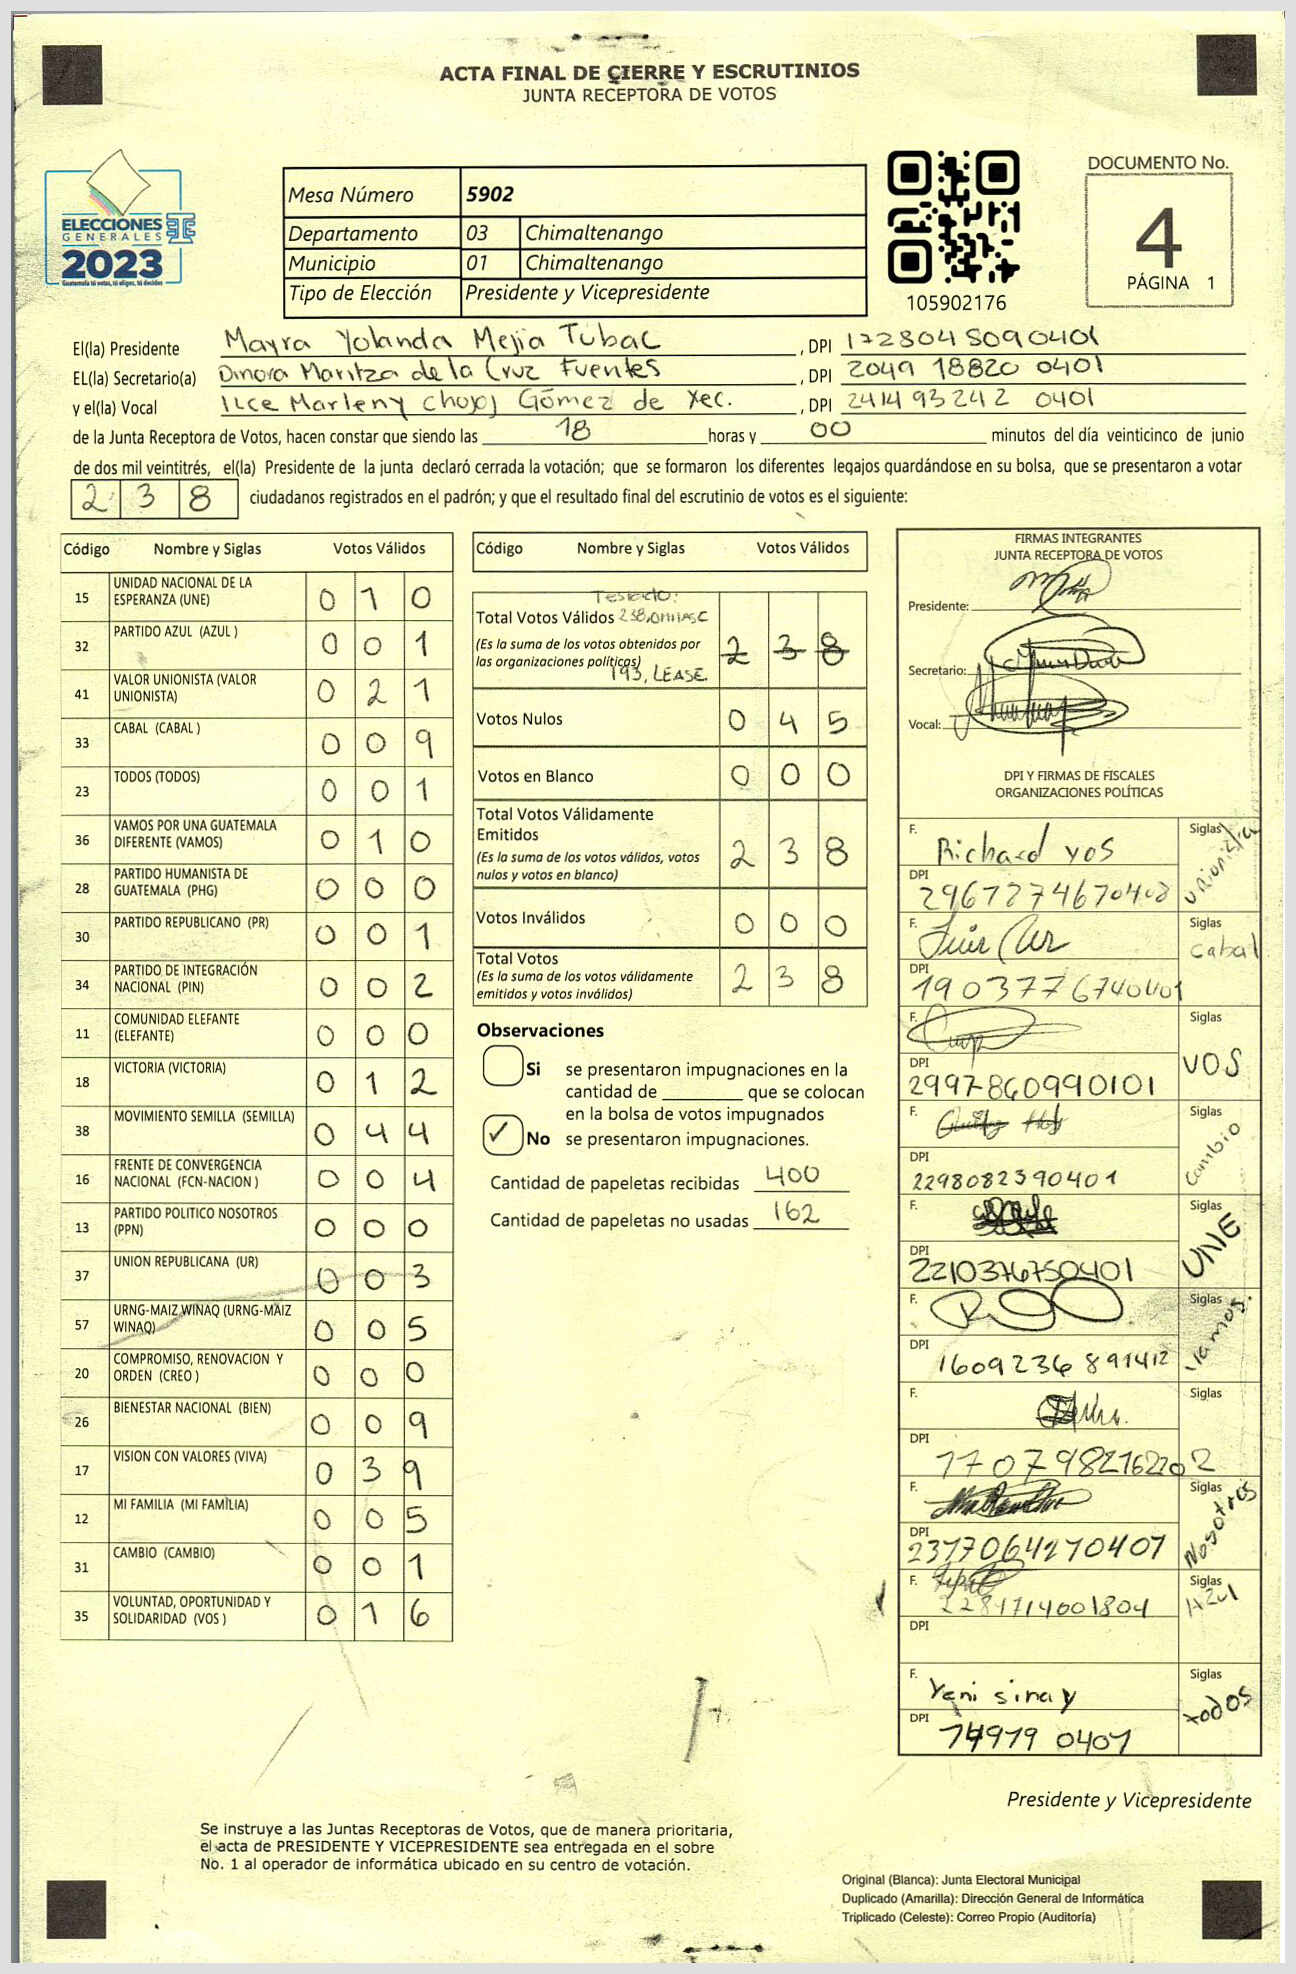 ACTA FINAL DE CIERRE Y ESCRUTINIOS
JUNTA RECEPTORA DE VOTOS
ELECCIONES
GENERALES
2023
Guatemala tú votas, tú eliges, tú decides
Mesa Número 5902
Departamento 03 Chimaltenango
Municipio 01 Chimaltenango
Tipo de Elección Presidente y Vicepresidente
105902176
DOCUMENTO No.
4
PÁGINA 1
El(la) Presidente Mayra Yolanda Mejia Tubac, DPI 1728045090401
EL(la) Secretario(a) Dinora Maritza de la Cruz Fuentes, DPI 2049 18820 0401
y el(la) Vocal Ilce Marleny Chojoj Gómez de Xec., DPI 241493242 0401
de la Junta Receptora de Votos, hacen constar que siendo las 18 horas y 00 minutos del día veinticinco de junio
de dos mil veintitrés, el(la) Presidente de la junta declaró cerrada la votación; que se formaron los diferentes legajos guardándose en su bolsa, que se presentaron a votar
2 3 8 ciudadanos registrados en el padrón; y que el resultado final del escrutinio de votos es el siguiente:
Código Nombre y Siglas Votos Válidos
15 UNIDAD NACIONAL DE LA ESPERANZA (UNE) 0 1 0
32 PARTIDO AZUL (AZUL ) 0 0 1
41 VALOR UNIONISTA (VALOR UNIONISTA) 0 2 1
33 CABAL (CABAL ) 0 0 9
23 TODOS (TODOS) 0 0 1
36 VAMOS POR UNA GUATEMALA DIFERENTE (VAMOS) 0 1 0
28 PARTIDO HUMANISTA DE GUATEMALA (PHG) 0 0 0
30 PARTIDO REPUBLICANO (PR) 0 0 1
34 PARTIDO DE INTEGRACIÓN NACIONAL (PIN) 0 0 2
11 COMUNIDAD ELEFANTE (ELEFANTE) 0 0 0
18 VICTORIA (VICTORIA) 0 1 2
38 MOVIMIENTO SEMILLA (SEMILLA) 0 4 4
16 FRENTE DE CONVERGENCIA NACIONAL (FCN-NACION ) 0 0 4
13 PARTIDO POLITICO NOSOTROS (PPN) 0 0 0
37 UNION REPUBLICANA (UR) 0 0 3
57 URNG-MAIZ WINAQ (URNG-MAIZ WINAQ) 0 0 5
20 COMPROMISO, RENOVACION Y ORDEN (CREO ) 0 0 0
26 BIENESTAR NACIONAL (BIEN) 0 0 9
17 VISION CON VALORES (VIVA) 0 3 9
12 MI FAMILIA (MI FAMILIA) 0 0 5
31 CAMBIO (CAMBIO) 0 0 1
35 VOLUNTAD, OPORTUNIDAD Y SOLIDARIDAD (VOS ) 0 1 6
Código Nombre y Siglas Votos Válidos
Testado:
Total Votos Válidos 238, omitase
(Es la suma de los votos obtenidos por
las organizaciones políticas) 2 3 8
193, LEASE.
Votos Nulos 0 4 5
Votos en Blanco 0 0 0
Total Votos Válidamente
Emitidos
(Es la suma de los votos válidos, votos
nulos y votos en blanco) 2 3 8
Votos Inválidos 0 0 0
Total Votos
(Es la suma de los votos válidamente
emitidos y votos inválidos) 2 3 8
Observaciones
Si se presentaron impugnaciones en la
cantidad de ________ que se colocan
en la bolsa de votos impugnados
✓ No se presentaron impugnaciones.
Cantidad de papeletas recibidas 400
Cantidad de papeletas no usadas 162
FIRMAS INTEGRANTES
JUNTA RECEPTORA DE VOTOS
Presidente:
Secretario:
Vocal:
DPI Y FIRMAS DE FISCALES
ORGANIZACIONES POLÍTICAS
F. Richard Yos Siglas Unionista
DPI 2967274670408
F. Siglas Cabal
DPI 1903776740401
F. Siglas VOS
DPI 2997860990101
F. Siglas Cambio
DPI 2298082390401
F. Siglas UNE
DPI 2210376750401
F. Siglas Vamos.
DPI 1609236891412
F. Siglas
DPI 1707982162202
F. Siglas Nosotros
DPI 2377064270407
F. Siglas Azul
2281714601804
DPI
F. Yeni Sinay Siglas todos
DPI 74979 0407
Presidente y Vicepresidente
Se instruye a las Juntas Receptoras de Votos, que de manera prioritaria,
el acta de PRESIDENTE Y VICEPRESIDENTE sea entregada en el sobre
No. 1 al operador de informática ubicado en su centro de votación.
Original (Blanca): Junta Electoral Municipal
Duplicado (Amarilla): Dirección General de Informática
Triplicado (Celeste): Correo Propio (Auditoría)